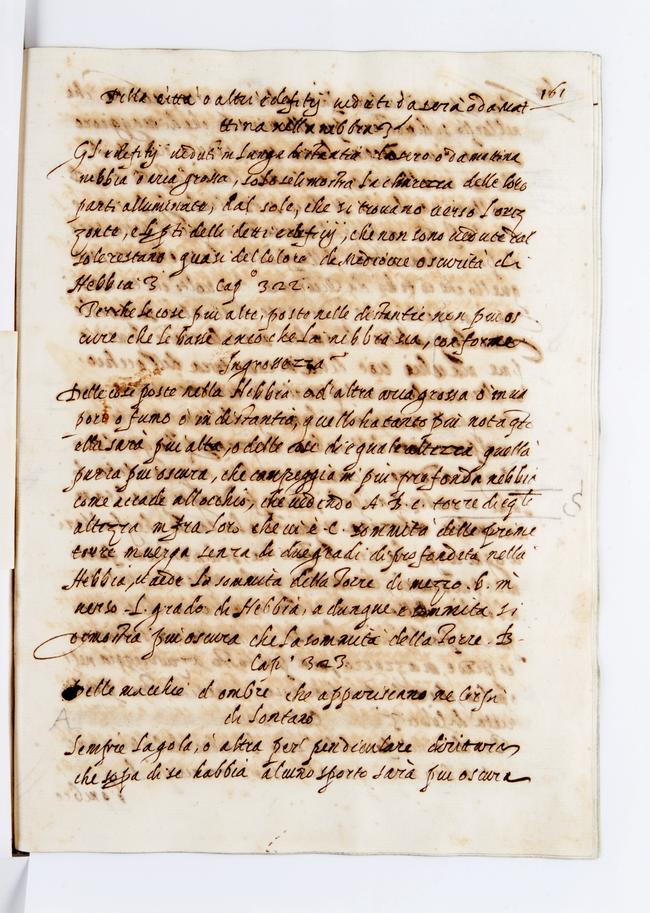 161
Della città o altri edefitij ueduti da sera o da mat
tina nella nibbia 3
Gl'edefitij ueduti in lunga distantia da sera o da matina
nebbia ò aria grossa, solo se li mostra la chiarezza delle loro
parti alluminate, dal sole, che si trouano uerso l'oriz
zonte, e le pti delli detti edefitij, che non sono uedute dal
sole restano quasi del colore de Mediocre oscurità di
Nebbia 3 Cap.º 322
Perche le cose piu alte, poste nelle distantie non piu os
cure che le basse ancò che la nibbia sia, conforme
Ingrossezza
Delle cose poste nella Nebbia o d'altra aria grossa o in ua
pore o fumo ò in distantia, quello ha tanto piu nota qto
ella sarà piu alta, o delle cose di equale altezza quella
paria piu oscura, che campeggia in piu profonda nebbia
come accade all occhio, che uedendo A. B. c. torre di egle
altezza in fra loro che ui è C. sommità della prima
torre in uerga senza di due gradi di profondeta nella
Nebbia, uaede la sommità della Torre di mezzo. b. in
uerso -L. grado di Nebbia, adunque c sommità si
dimostra piu oscura che la sommità della Torre. B-
Cap.º 323
Delle macchie d'ombre che appariscano ne Corpi
di lontano
Sempre la gola, ò altra perpendiculare diritura
che sopa di se habbia alcuno sporto sarà piu oscura
A